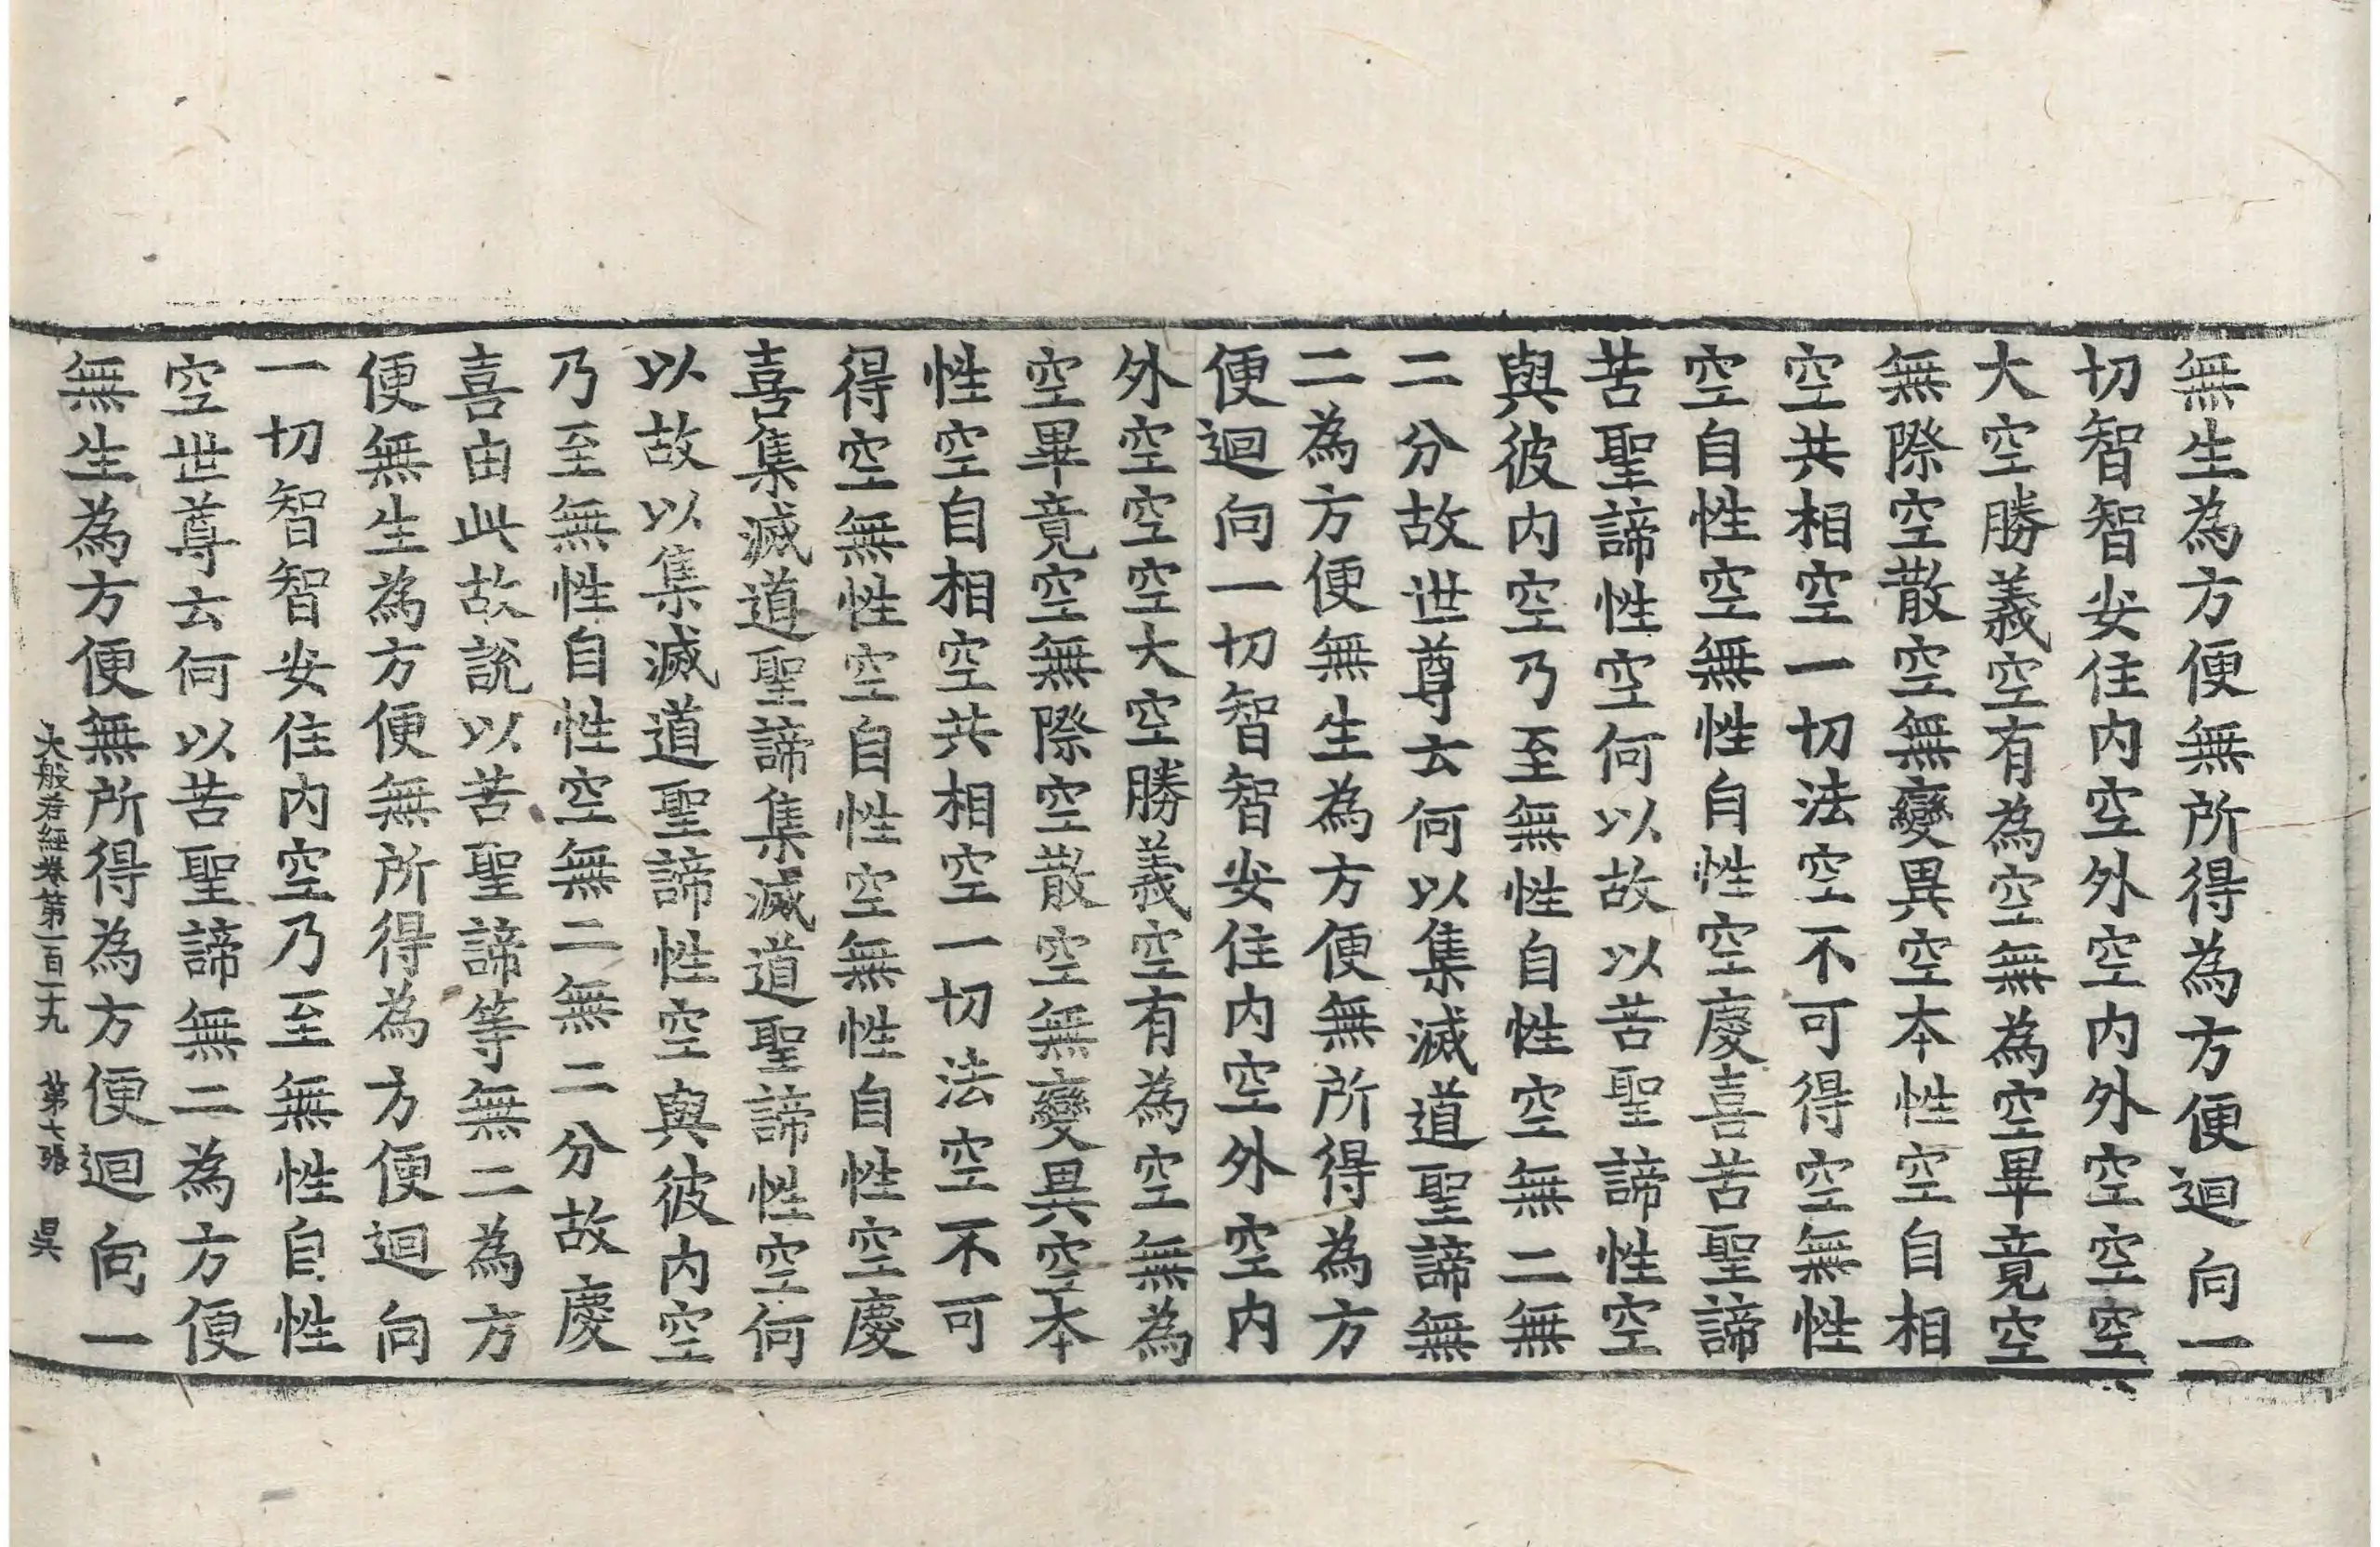 無生為方便無所得為方便迴向一
切智智安住内空外空内外空空空
大空勝義空有為空無為空畢竟空
無際空散空無變異空本性空自相
空共相空一切法空不可得空無性
空自性空無性自性空慶喜苦聖諦
苦聖諦性空何以故以苦聖諦性空
與彼内空乃至無性自性空無二無
二分故世尊云何以集滅道聖諦無
二為方便無生為方便無所得為方
便迴向一切智智安住内空外空内
外空空空大空勝義空有為空無為
空畢竟空無際空散空無變異空本
性空自相空共相空一切法空不可
得空無性空自性空無性自性空慶
喜集滅道聖諦集滅道聖諦性空何
以故以集滅道聖諦性空與彼内空
乃至無性自性空無二無二分故慶
喜由此故説以苦聖諦等無二為方
便無生為方便無所得為方便迴向
一切智智安住内空乃至無性自性
空世尊云何以苦聖諦無二為方便
無生為方便無所得為方便迴向一
大般若經卷第一百一十九 第七張 昃